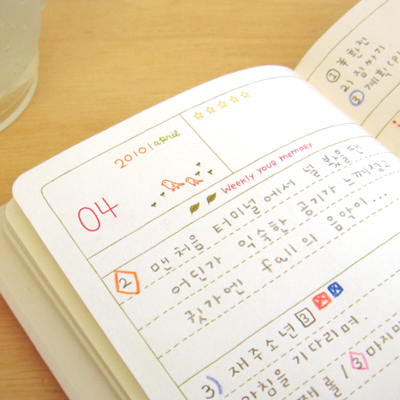 2010 | april
04
Weekly your memory
2 맨처음 터미널에서 널 봤을땐
어딘가 익숙한 공기가 느껴졌고
귓가엔 fall의 음악이...
3) 재주소년 3
아침을 기다리며.
째 홀/3 마지막
① 환전
2) 짐싸기.
③ 계획